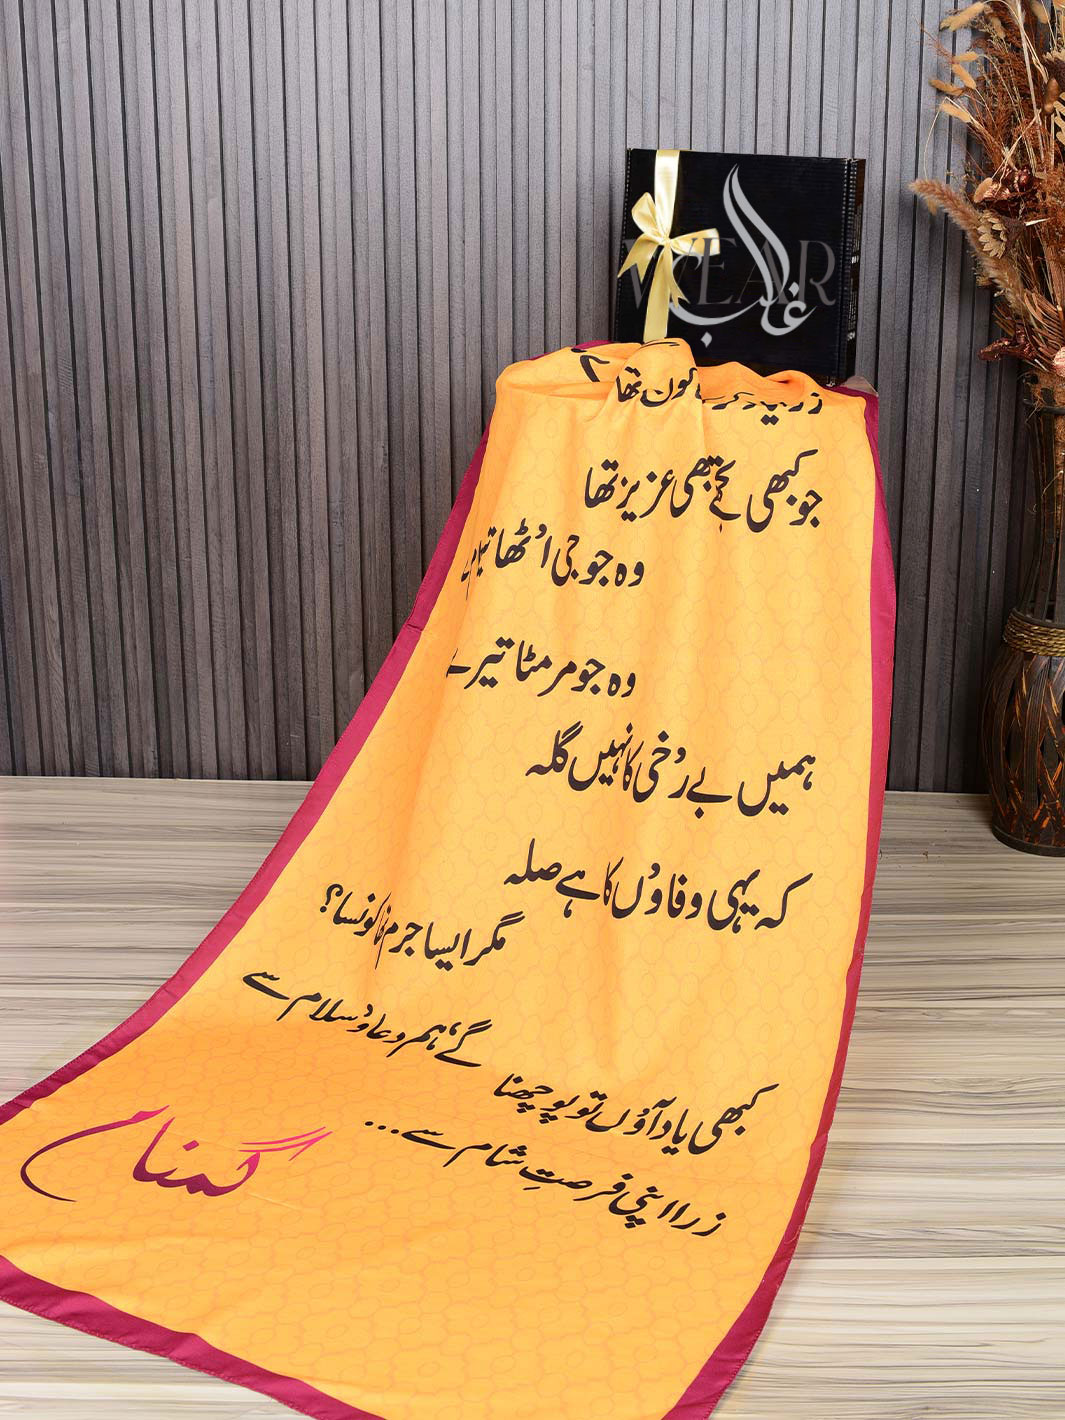 WEAR
غالب
کون تھا
جو کبھی تجھے بھی عزیز تھا
وہ جو جی اُٹھا
وہ جو مر مٹا تیرے
ہمیں بے رُخی کا نہیں گلہ
کہ یہی وفاؤں کا ہے صلہ
مگر ایسا جرم تھا کونسا؟
گئے ہم دعا و سلام سے
کبھی یاد آؤں تو پوچھنا
ذرا اپنی فرصتِ شام سے...
گمنام